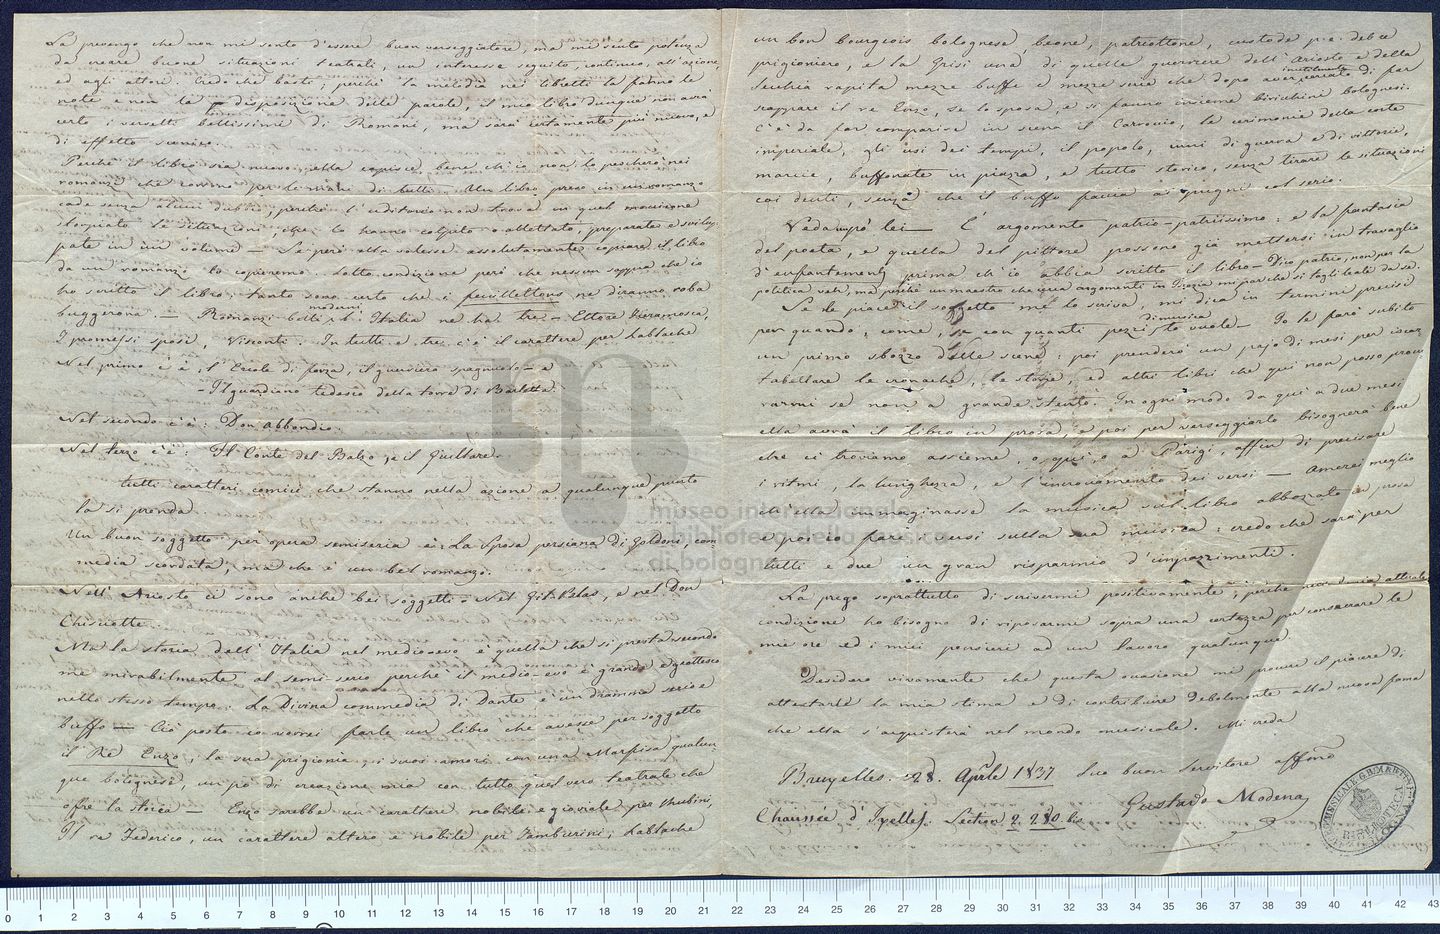 La prevengo che non mi sento d'essere buon verseggiatore, ma mi sento potenza
da creare buone situazioni teatrali, un interesse seguito, continuo, all'azione
ed agli attori. Credo che basti, perché la melodia nei libretti la fanno le
note e non la disposizione delle parole, il mio libro dunque non avrà
certo i versetti bellissimi di Romani, ma sarà certamente più nuovo, e
di effetto scenico.
Perché il libro sia nuovo ella capisce bene ch'io non lo pescherò nei
romanzi che corrono per le mani di tutti. Un libro preso in un romanzo
cade senza alcun dubbio, perché l'uditorio non trova in quel
stroppiato le situazioni che lo hanno colpito o allettato, preparate e svilup-
pate in un volume — Se però ella volesse assolutamente copiare il libro
da un romanzo lo copieremo. Sotto condizione però che nessun sappia che io
ho scritto il libro: tanto sono certo che i feuilletons ne diranno roba
buggerona. — Romanzi belli moderni l'Italia ne ha tre — Ettore Fieramosca,
I promessi sposi, Visconti. In tutti e tre c'è il carattere per Lablache
Nel primo c'è, l'Ercole di forza, il guerriero spagnuolo — e
— Il guardiano tedesco della torre di Barletta.
Nel secondo c'è: Don Abbondio.
Nel terzo c'è: Il Conte del Balzo, e il Giullare.
tutti caratteri comici che stanno nella azione a qualunque punto
la si prenda.
Un buon soggetto per opera semiseria è: La Sposa persiana di Goldoni, com-
media scordata, ma che è un bel romanzo.
Nell'Ariosto ci sono anche bei soggetti. Nel Gil-Blas, e nel Don
Chisciotte.
Ma la storia dell'Italia nel medioevo è quella che si presta secondo
me mirabilmente al semi-serio perché il medio-evo è grande e grottesco
nello stesso tempo: La Divina commedia di Dante è un dramma serio e
buffo — Ciò posto io vorrei farle un libro che avesse per soggetto
il Re Enzo, la sua prigionia, i suoi amori con una Marfisa qualun-
que bolognese, un po' di creazione mia con tutto quel vero teatrale che
offre la storia — Enzo sarebbe un carattere nobile e gioviale per Rubini,
Il re Federico, un carattere altero e nobile per Tamburini; Lablache
un bon bourgeois bolognese beone, patriottone, custode p.e. del re
prigioniero, e la Grisi una di quelle guerriere dell'Ariosto e della
Secchia rapita mezze buffe e mezze serie che dopo aver inutilmente cercato di far
scappare il re Enzo, se lo sposa, e si fanno insieme birichini bolognesi.
C'è da far comparire in scena il Carroccio, le cerimonie della corte
imperiale, gli usi dei tempi, il popolo, inni di guerra e di vittoria,
marcie, buffonate in piazza, e tutto storico, senza tirare le situazioni
coi denti, senza che il buffo faccia ai pugni col serio.
Veda un po' lei — È argomento patrio-patriissimo: e la fantasia
del poeta, e quella del pittore possono già mettersi in travaglio
d'enfantement prima ch'io abbia scritto il libro — Dico patrio, non per la
politica veh, ma perché un maestro che cerca argomenti in mi par che si tagli
Se le piace il soggetto me lo scriva, mi dica in termini precisi
per quando, come, e con quanti pezzi di musica lo vuole — Io le farò subito
un primo sbozzo delle scene: poi prenderò un pajo di mesi per iscar-
tabellare le cronache, le storie, ed altri libri che qui non posso procu-
rarmi se non a grande stento. In ogni modo da qui a due mesi
ella avrà il libro in prosa, e poi per verseggiarlo bisognerà bene
che ci troviamo assieme, o qui, o a Parigi, affin di precisare
i ritmi, la lunghezza, e l'increvamento dei versi — Amerei meglio
ch'ella immaginasse la musica sul libro abbozzato in prosa
e poi io farei i versi sulla sua musica: credo che sarà per
tutti e due un gran risparmio d'impazzimenti.
La prego soprattutto di scrivermi positivamente, perché nella mia attuale
condizione ho bisogno di riposarmi sopra una certezza per consacrare le
mie ore ed i miei pensieri ad un lavoro qualunque.
Desidero vivamente che questa occasione mi procuri il piacere di
attestarle la mia stima e di contribuire debolmente alla nuova fama
che ella s'acquisterà nel mondo musicale. Mi creda
Bruxelles. 28. Aprile 1837 Suo buon servitore affmo
Gustavo Modena
Chaussée d'Ixelles. Section 2. 280. bis
museo internazionale
e biblioteca della musica
di bologna
0 1 2 3 4 5 6 7 8 9 10 11 12 13 14 15 16 17 18 19 20 21 22 23 24 25 26 27 28 29 30 31 32 33 34 35 36 37 38 39 40 41 42 43